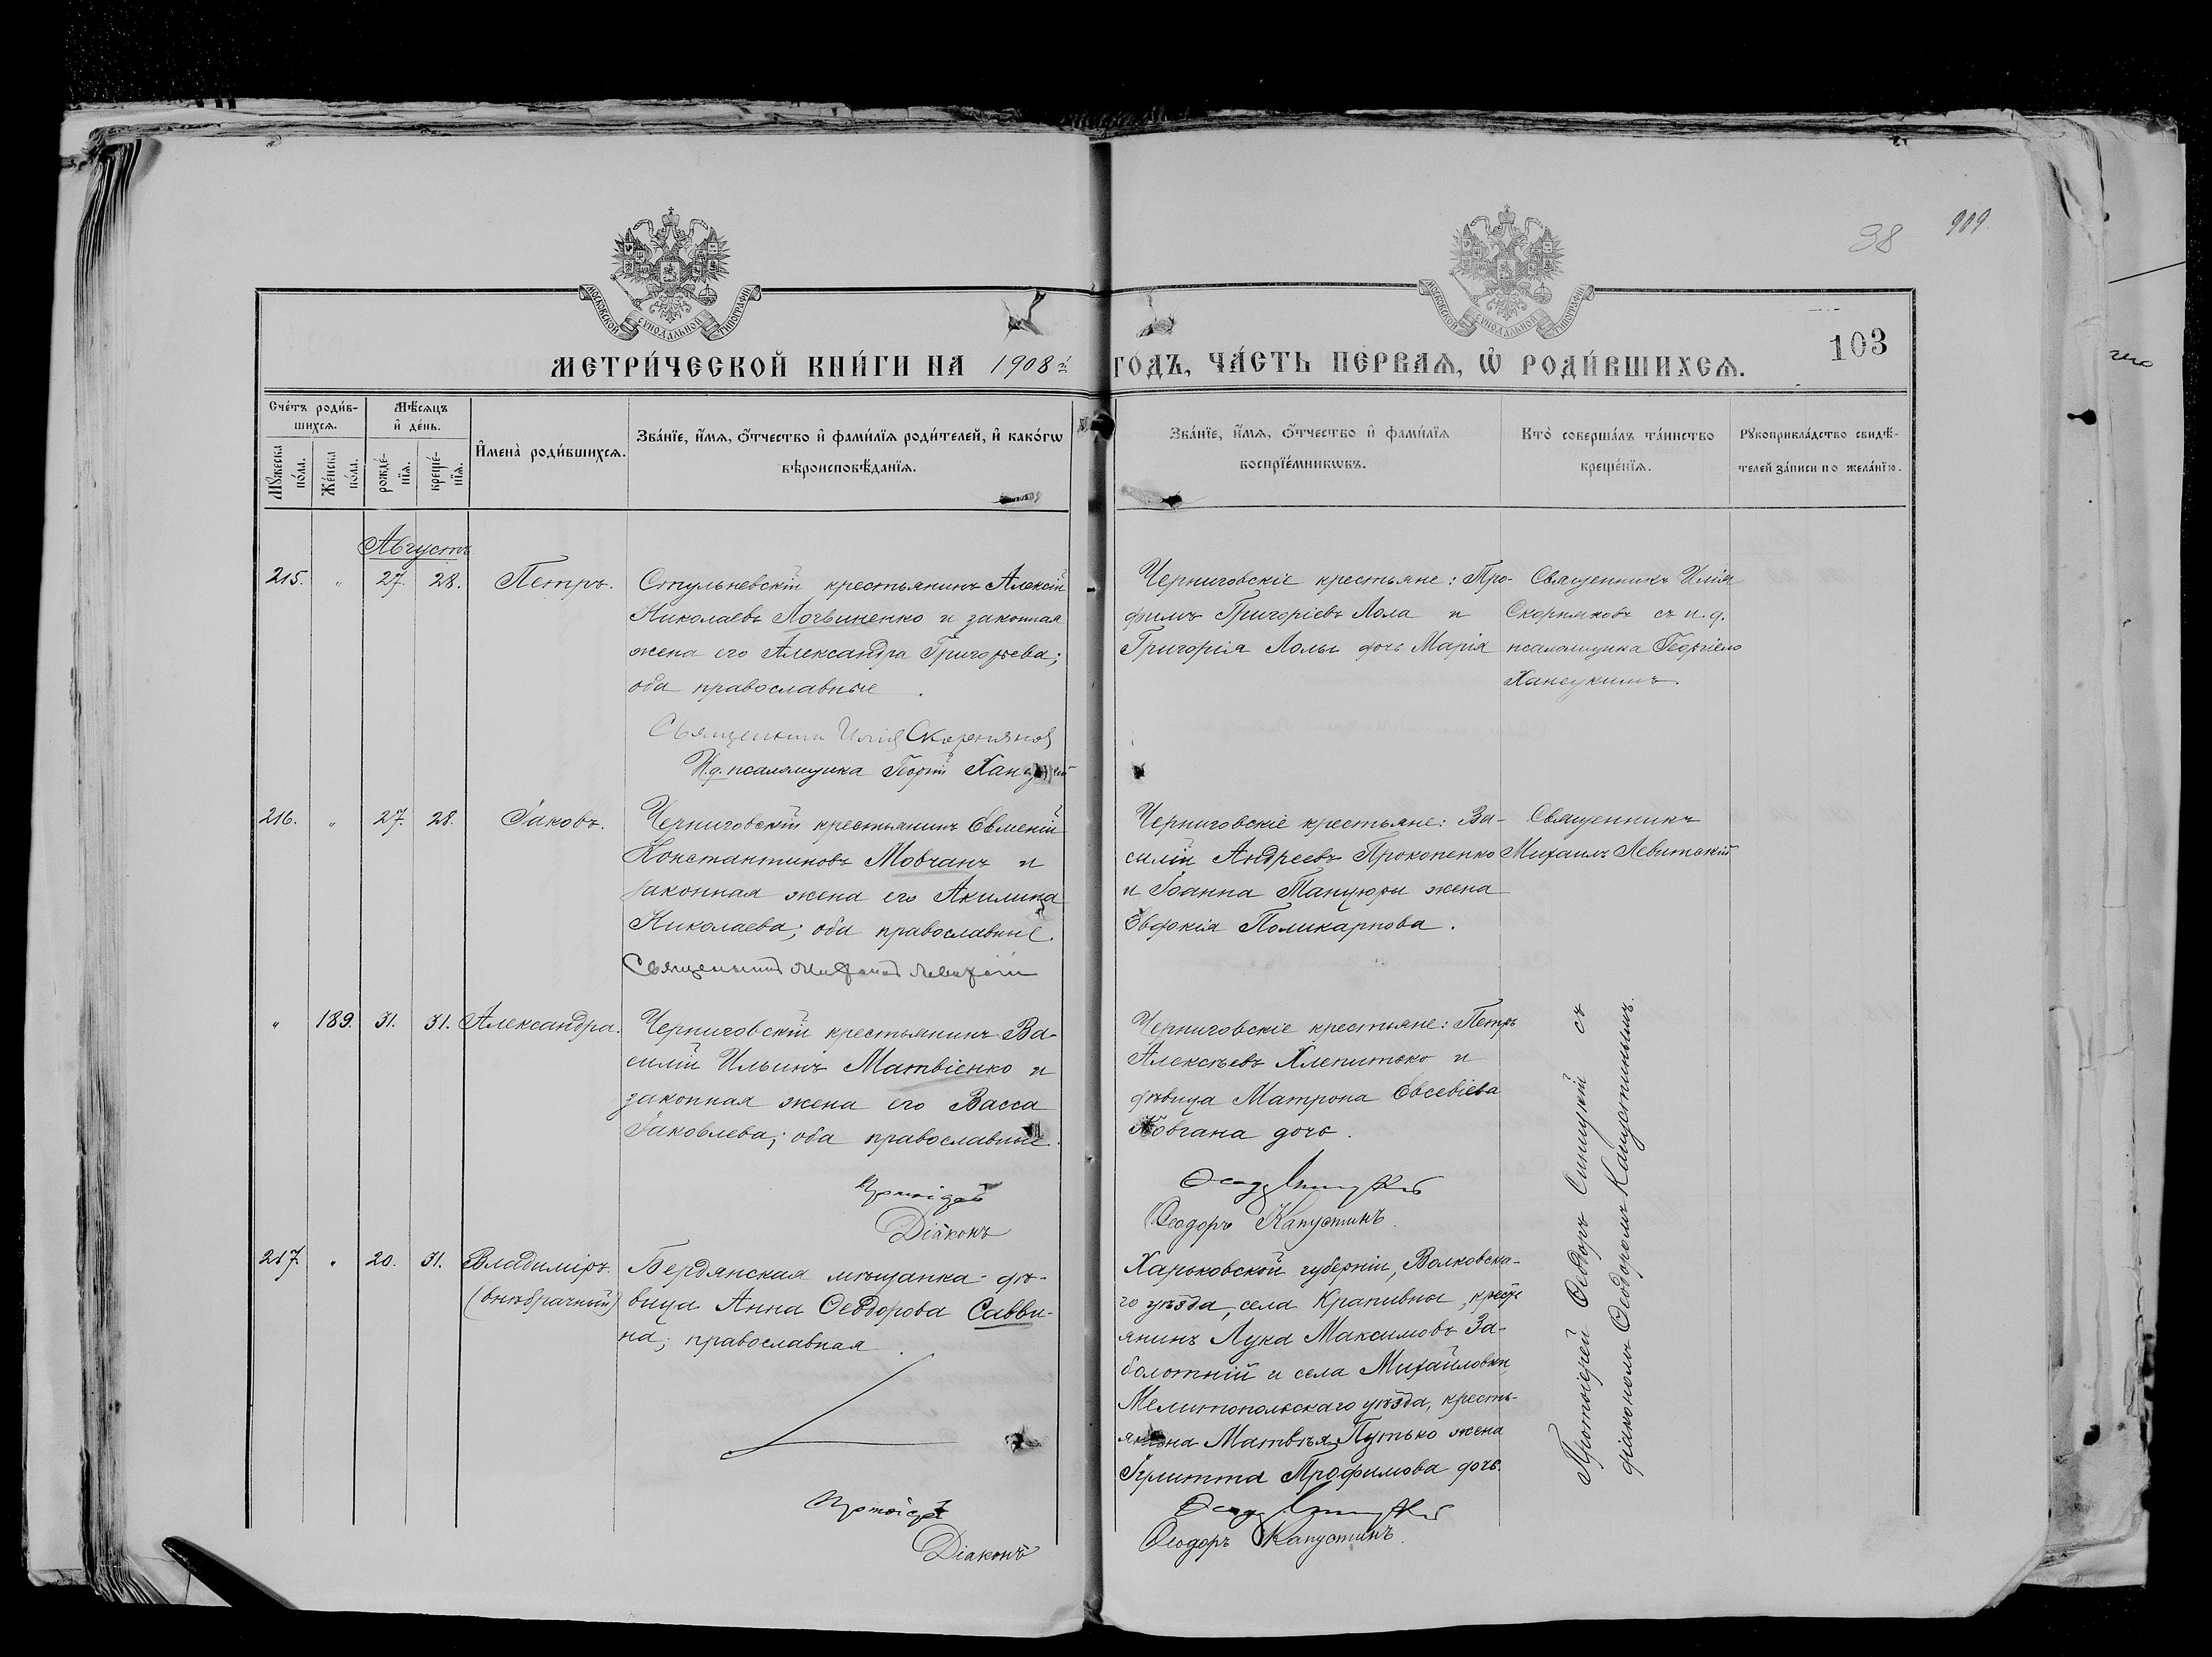 38 909
МОСКОВСКОЙ СѴНОДАЛЬНОЙ ТИПОГРАФІИ
МОСКОВСКОЙ СѴНОДАЛЬНОЙ ТИПОГРАФІИ
103
МЕТРИ́ЧЕСКОЙ КНИ́ГИ НА 1908 й ГО́ДЪ, ЧА́СТЬ ПЕ́РВАѦ, Ѡ҆ РОДИ́ВШИХСѦ.
Сче́тъ роди́в-
шихсѧ.
Мꙋ́жеска по́ла.
Же́нска по́ла.
Мѣ́сѧцъ
и҆ де́нь.
рожде́-нїѧ.
креще́-нїѧ.
И҆мена̀ роди́вшихсѧ.
Зва́нїе, и҆́мѧ, ѻ҆́тчество и҆ фами́лїѧ роди́телей, и҆ како́гѡ
вѣроисповѣ́данїѧ.
Зва́нїе, и҆́мѧ, ѻ҆́тчество и҆ фами́лїѧ
воспрїе́мникѡвъ.
Кто̀ соверша́лъ та́инство
креще́нїѧ.
Рꙋкоприкла́дство свидѣ́-
телей за́писи по жела́нїю.
Августъ
215. " 27. 28. Петръ.
Стульневскій крестьянинъ Алексій
Николаевъ Логвиненко и законная
жена его Александра Григорьева;
оба православные.
Священникъ Илія Скорняковъ
И.д. псаломщика Георгій
Черниговскіе крестьяне: Тро-
фимъ Григоріевъ Лола и
Григорія Лолы дочь Марія
Священникъ Илія
Скорняковъ съ и.д.
псаломщика Георгіемъ
216. " 27. 28. Іаковъ.
Черниговскій крестьянинъ Евменій
Константиновъ Мовчанъ и
законная жена его Акилина
Николаева; оба православные.
Священникъ Михаилъ Левитскій
Черниговскіе крестьяне: Ва-
силій Андреевъ Прокопенко
и Іоанна Танцюры жена
Евдокія Поликарпова.
Священникъ
Михаилъ Левитскій
" 189. 31. 31. Александра.
Черниговскій крестьянинъ Ва-
силій Ильинъ Матвіенко и
законная жена его Васса
Іаковлева; оба православные.
Протоіерей
Діаконъ
Черниговскіе крестьяне: Петръ
Алексѣевъ Хлепитько и
дѣвица Матрона Евсевіева
дочь.
Ѳеодоръ Капустинъ.
217. " 20. 31. Владиміръ.
(внѣбрачный)
Бердянская мѣщанка дѣ-
вица Анна Ѳеодорова Савви-
на; православная.
Протоіерей
Діаконъ
Харьковской губерніи, Волковска-
го уѣзда, села Крапивны, крест
янинъ Лука Максимовъ За-
болотній и села Михайловки,
Мелитопольскаго уѣзда, кресть-
янина Матвѣя Путько жена
Іулитта Трофимова дочь.
Ѳеодоръ Капустинъ.
Протоіерей Ѳеодоръ Синицкій съ
діакономъ Ѳеодоромъ Капустинымъ.